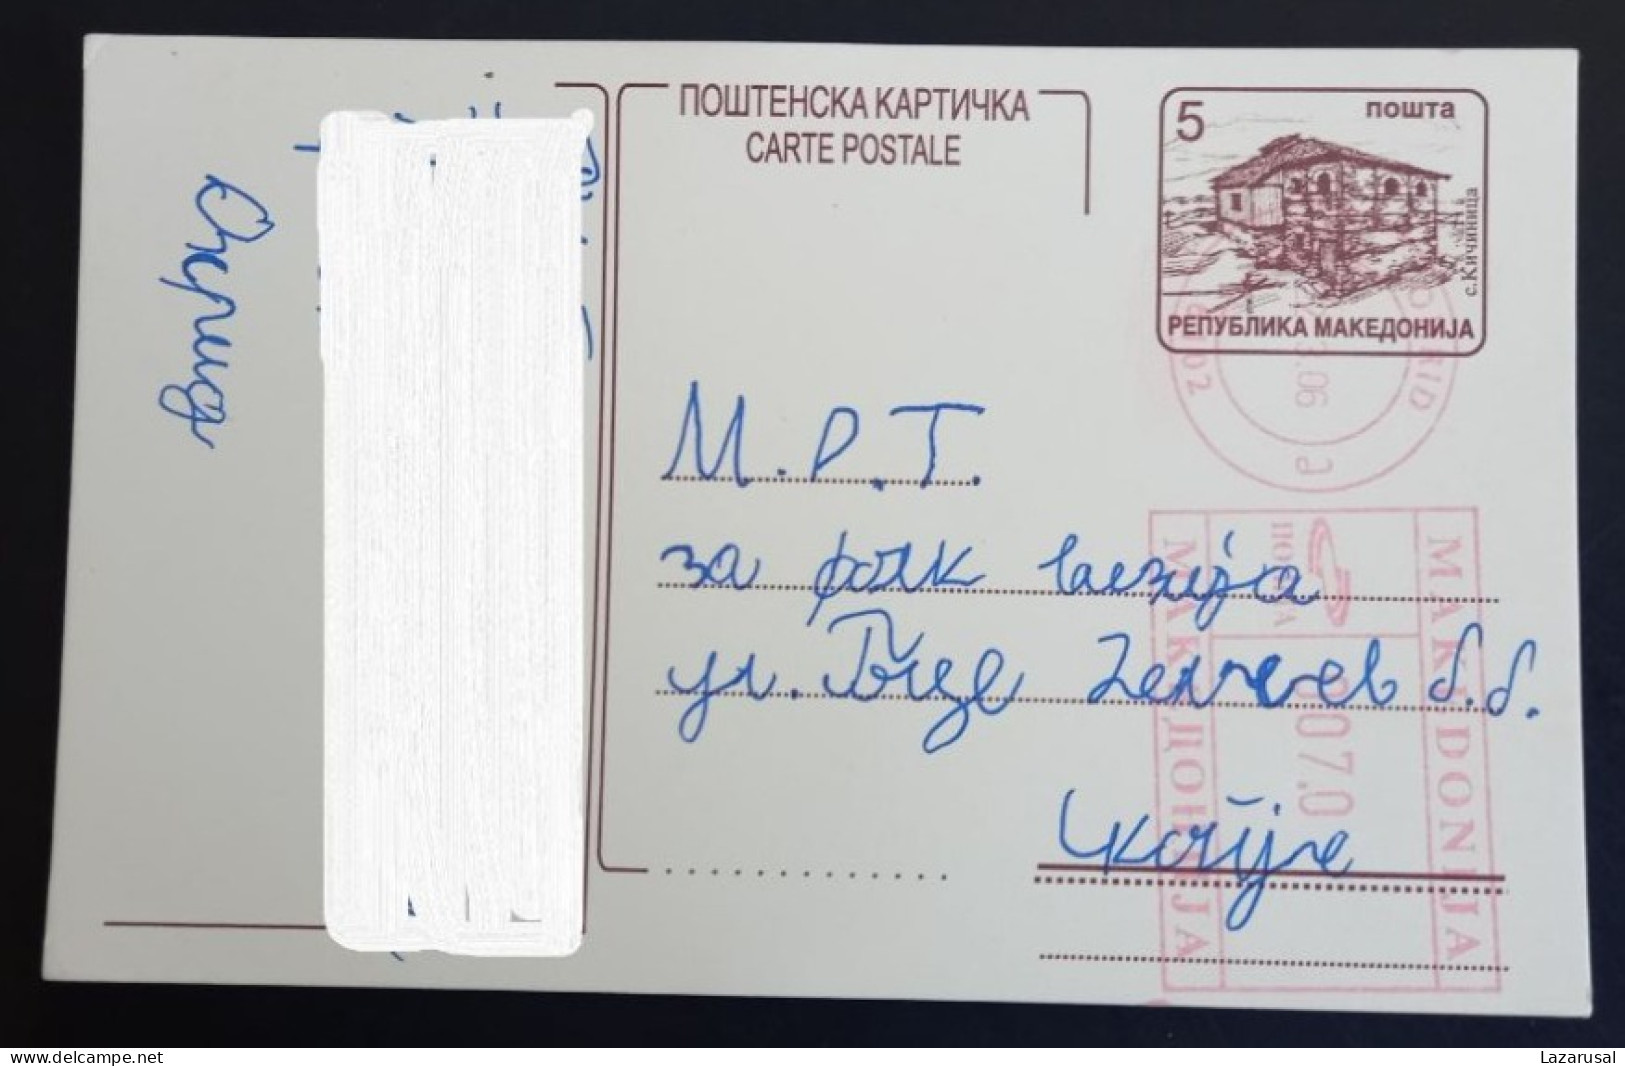 ПОШТЕНСКА КАРТИЧКА
CARTE POSTALE
5 пошта
с.Кичиница
РЕПУБЛИКА МАКЕДОНИЈА
Охрид
М.Р.Т.
за фолк
ул. Гоце Делчев б.б.
Скопје
OHRID
6102
.06
a
МАКЕДОНИЈА
ПОШТА
007.0
MAKEDONIJA
www.delcampe.net
Lazarusal